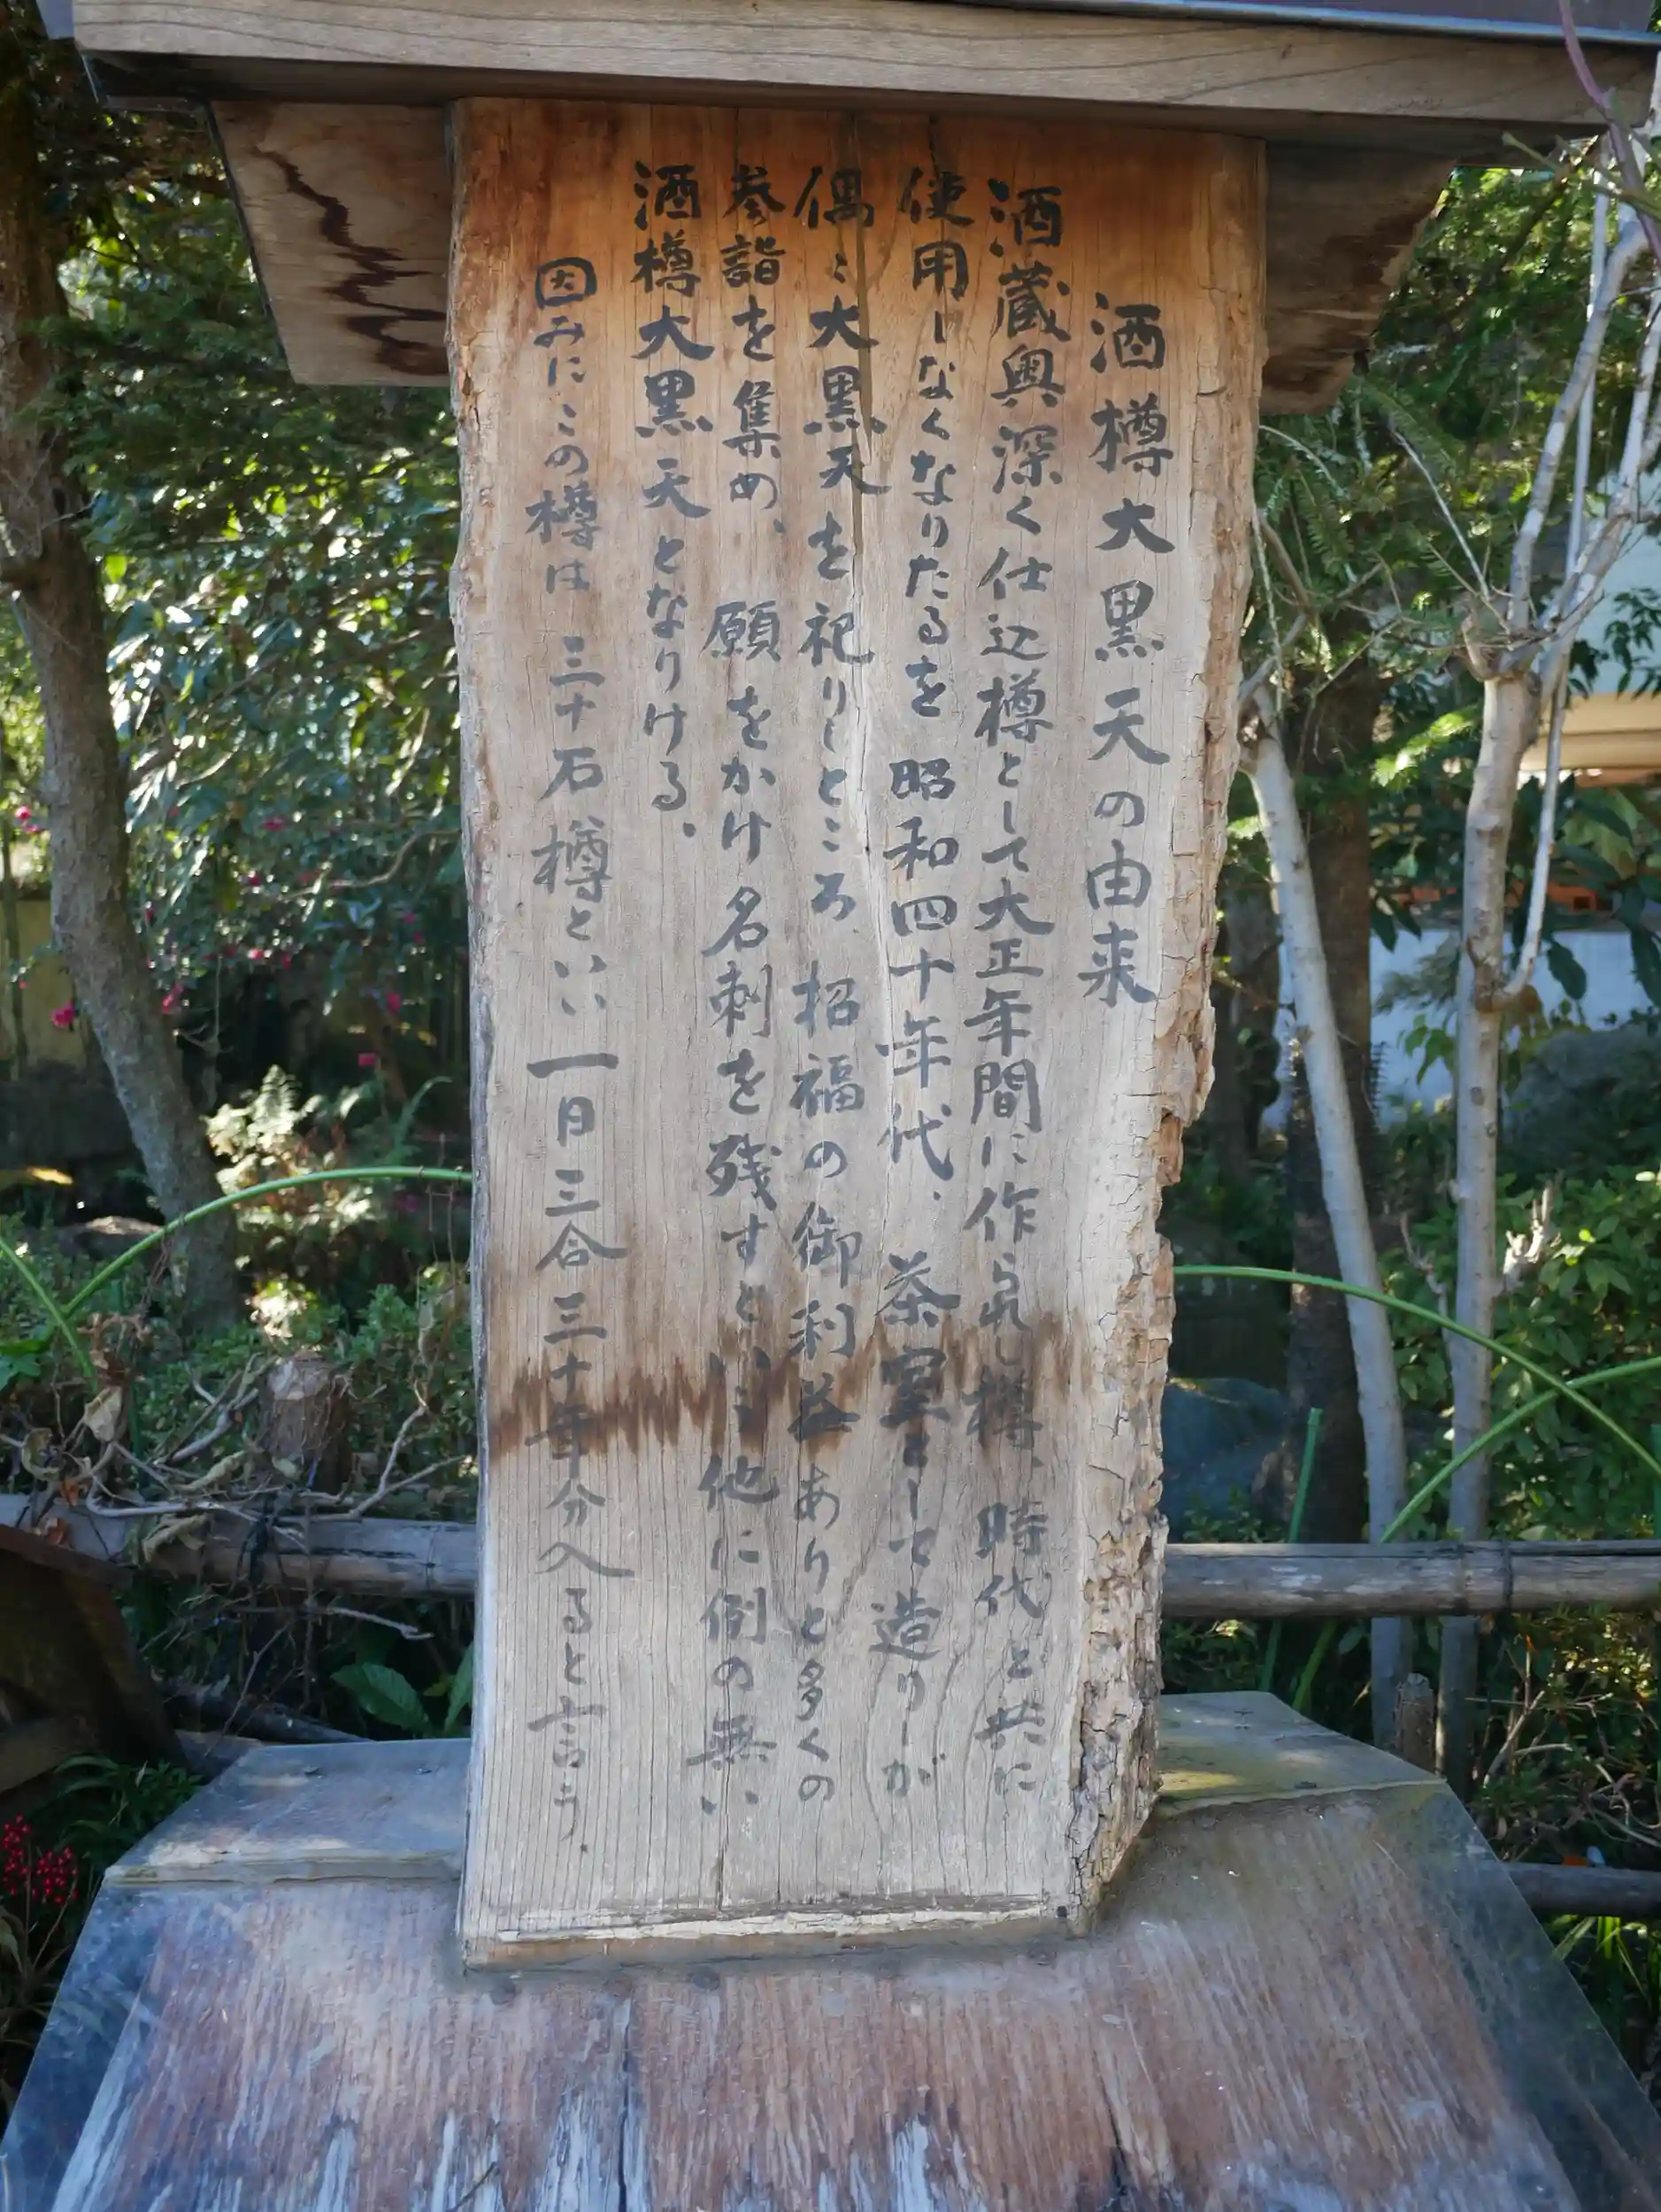 酒樽大黒天の由来
酒蔵奥深く仕込樽として大正年間に作られし樽、時代と共に
使用しなくなりたるを昭和四十年代、茶室として造りしが
偶〻大黒天を祀りしところ、招福の御利益ありと多くの
参詣を集め、願をかけ名刺を残すという他に例の無い
酒樽大黒天となりける。
因みにこの樽は三十石樽といい一日三合三十年分入ると言う。